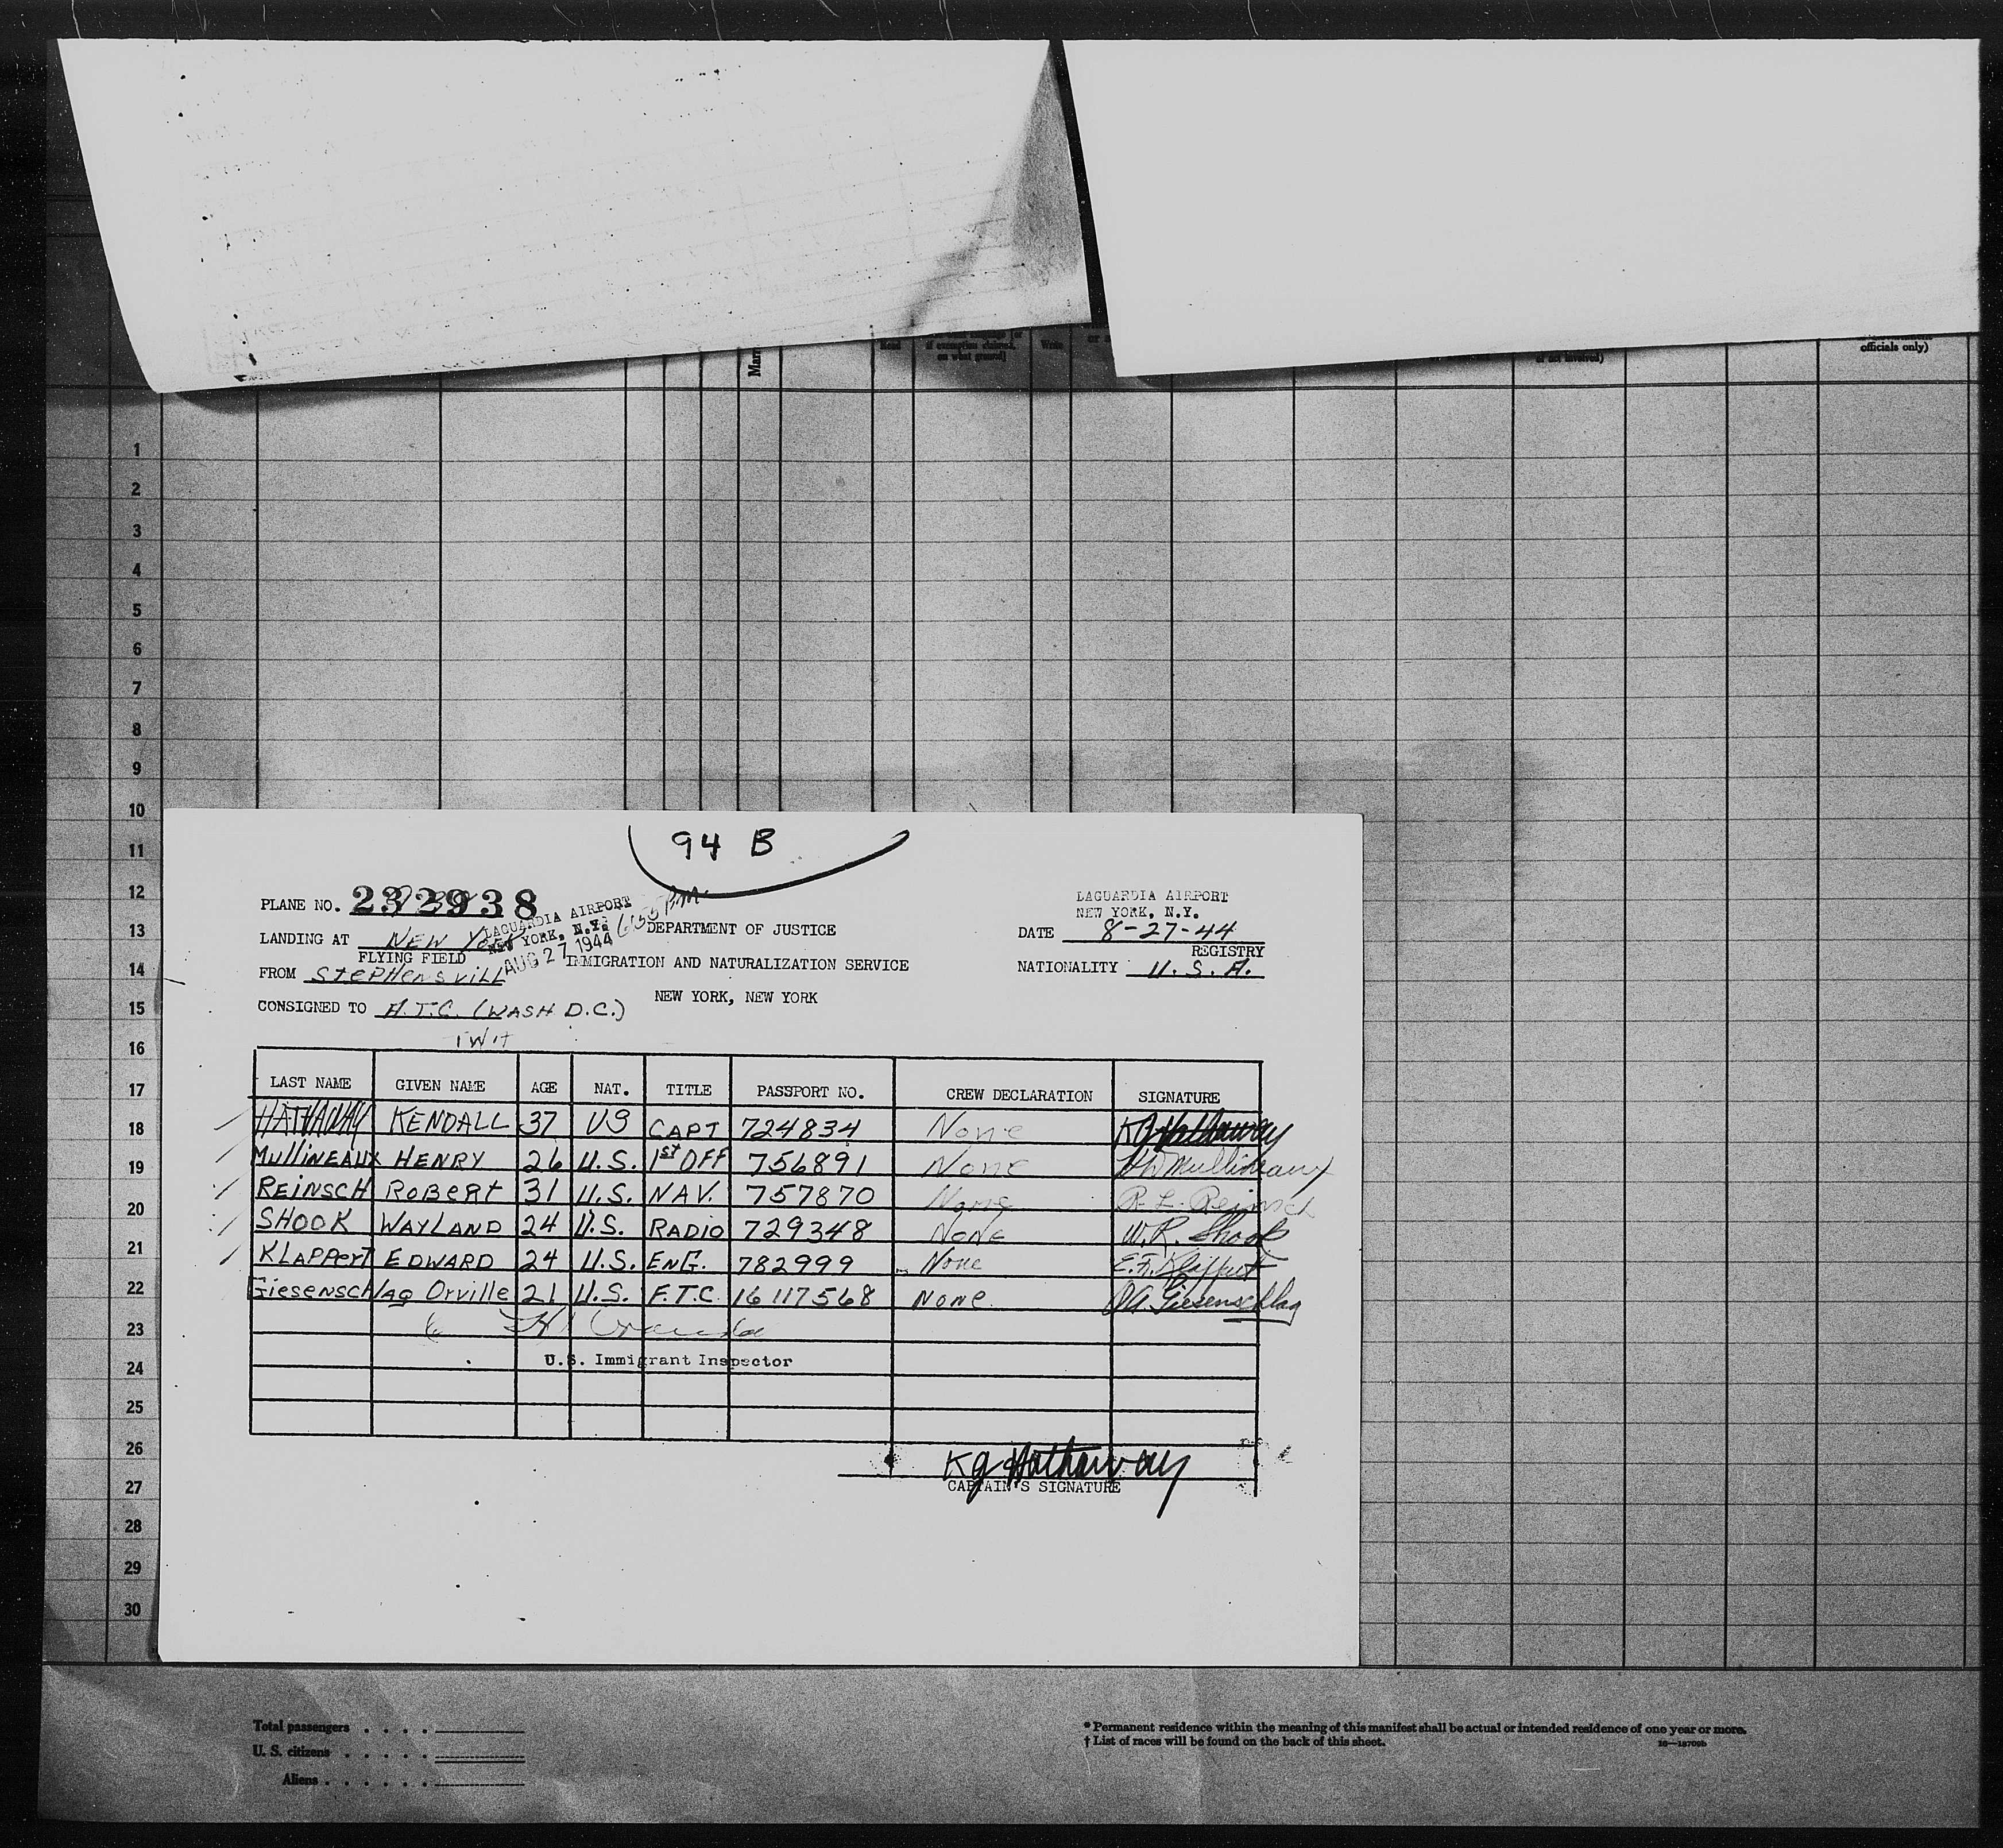 Marr
Read
if exemption claimed,
on what ground)
Write
officials only)
1
2
3
4
5
6
7
8
9
10
11
12
13
14
15
16
17
18
19
20
21
22
23
24
25
26
27
28
29
30
94 B
PLANE NO. 232938
LAGUARDIA AIRPORT
NEW YORK, N.Y.
AUG 27 1944
LAGUARDIA AIRPORT
NEW YORK, N.Y.
LANDING AT NEW YORK DEPARTMENT OF JUSTICE DATE 8-27-44
FLYING FIELD REGISTRY
FROM STEPHENSVILL IMMIGRATION AND NATURALIZATION SERVICE NATIONALITY U.S.A.
CONSIGNED TO A.T.C. (WASH D.C.) NEW YORK, NEW YORK
LAST NAME GIVEN NAME AGE NAT. TITLE PASSPORT NO. CREW DECLARATION SIGNATURE
HATHAWAY KENDALL 37 US CAPT 724834 None KG Hathaway
MULLINEAUX HENRY 26 U.S. 1st OFF 756891 None HW Mullineaux
REINSCH ROBERT 31 U.S. NAV. 757870 None R. L. Reinsch
SHOOK WAYLAND 24 U.S. RADIO 729348 NONE W.R. Shook
KLAPPERT EDWARD 24 U.S. ENG. 782999 None E.F. Klappert
Giesenschlag Orville 21 U.S. F.T.C. 16117568 None O.A. Giesenschlag
U.S. Immigrant Inspector
KG Hathaway
CAPTAIN'S SIGNATURE
Total passengers . . . .
U. S. citizens . . . . .
Aliens . . . . . .
* Permanent residence within the meaning of this manifest shall be actual or intended residence of one year or more.
† List of races will be found on the back of this sheet.